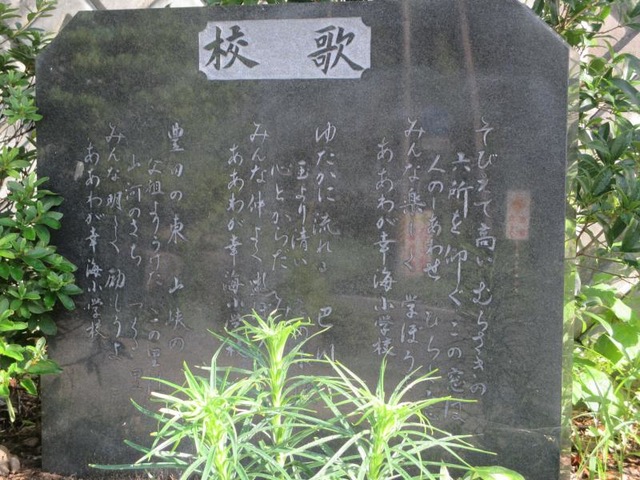 校歌
そびえて高い むらさきの
六所を仰ぐ この窓は
人のしあわせ ひらく
みんな楽しく 学ぼうよ
ああわが幸海小学校
ゆたかに流れる 巴川
玉より清い
心とからだ
みんな仲よく
ああわが幸海小学校
豊田の東 山峡の
父祖よりうけた この里
山河のさち
みんな明るく 励もうよ
ああわが幸海小学校